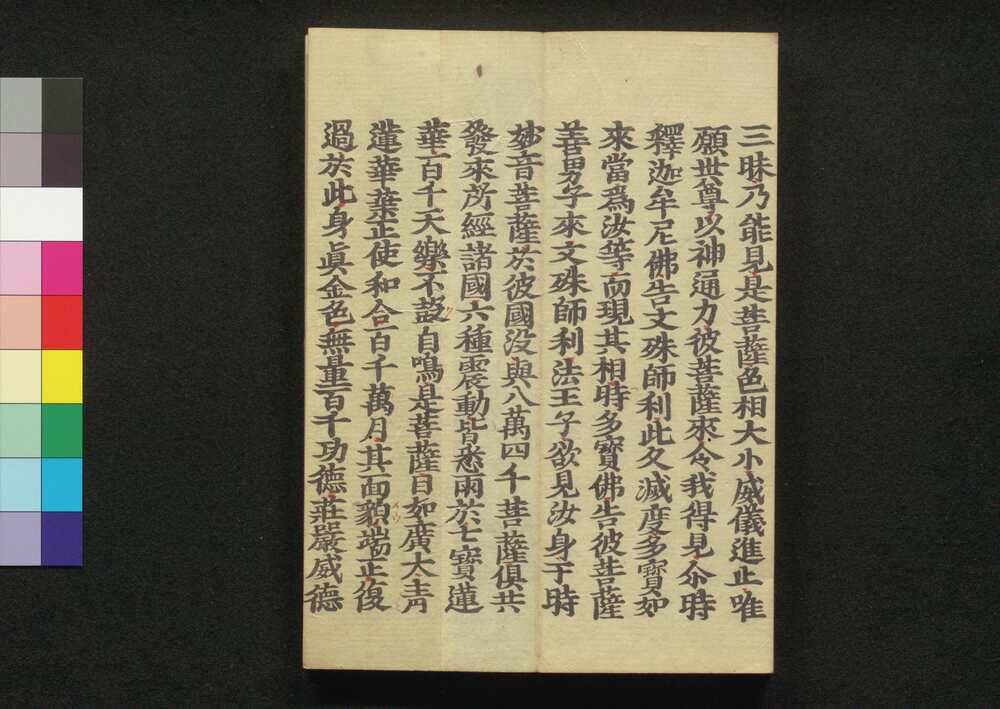 三昧乃能見是菩薩色相大小威儀進止唯
願世尊以神通力彼菩薩來令我得見尒時
釋迦牟尼佛告文殊師利此久滅度多寶如
來當爲汝等而現其相時多寶佛告彼菩薩
善男子來文殊師利法王子欲見汝身于時
妙音菩薩於彼國没與八萬四千菩薩俱共
發來所經諸國六種震動皆悉雨於七寶蓮
華百千天樂不鼓自鳴是菩薩目如廣大青
蓮華葉正使和合百千萬月其面貌端正復
過於此身眞金色無量百千功德莊嚴威德